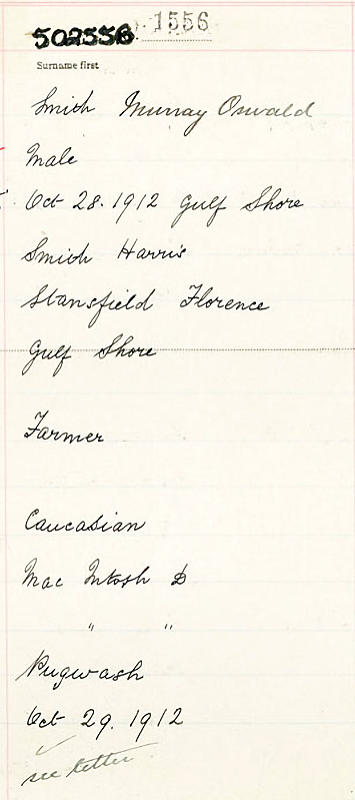 502556 1556
Surname first
Smith Murray Oswald
Male
Oct 28. 1912 Gulf Shore
Smith Harris
Stansfield Florence
Gulf Shore
Farmer
Caucasian
Mac Intosh D
" "
Pugwash
Oct 29. 1912
see letter